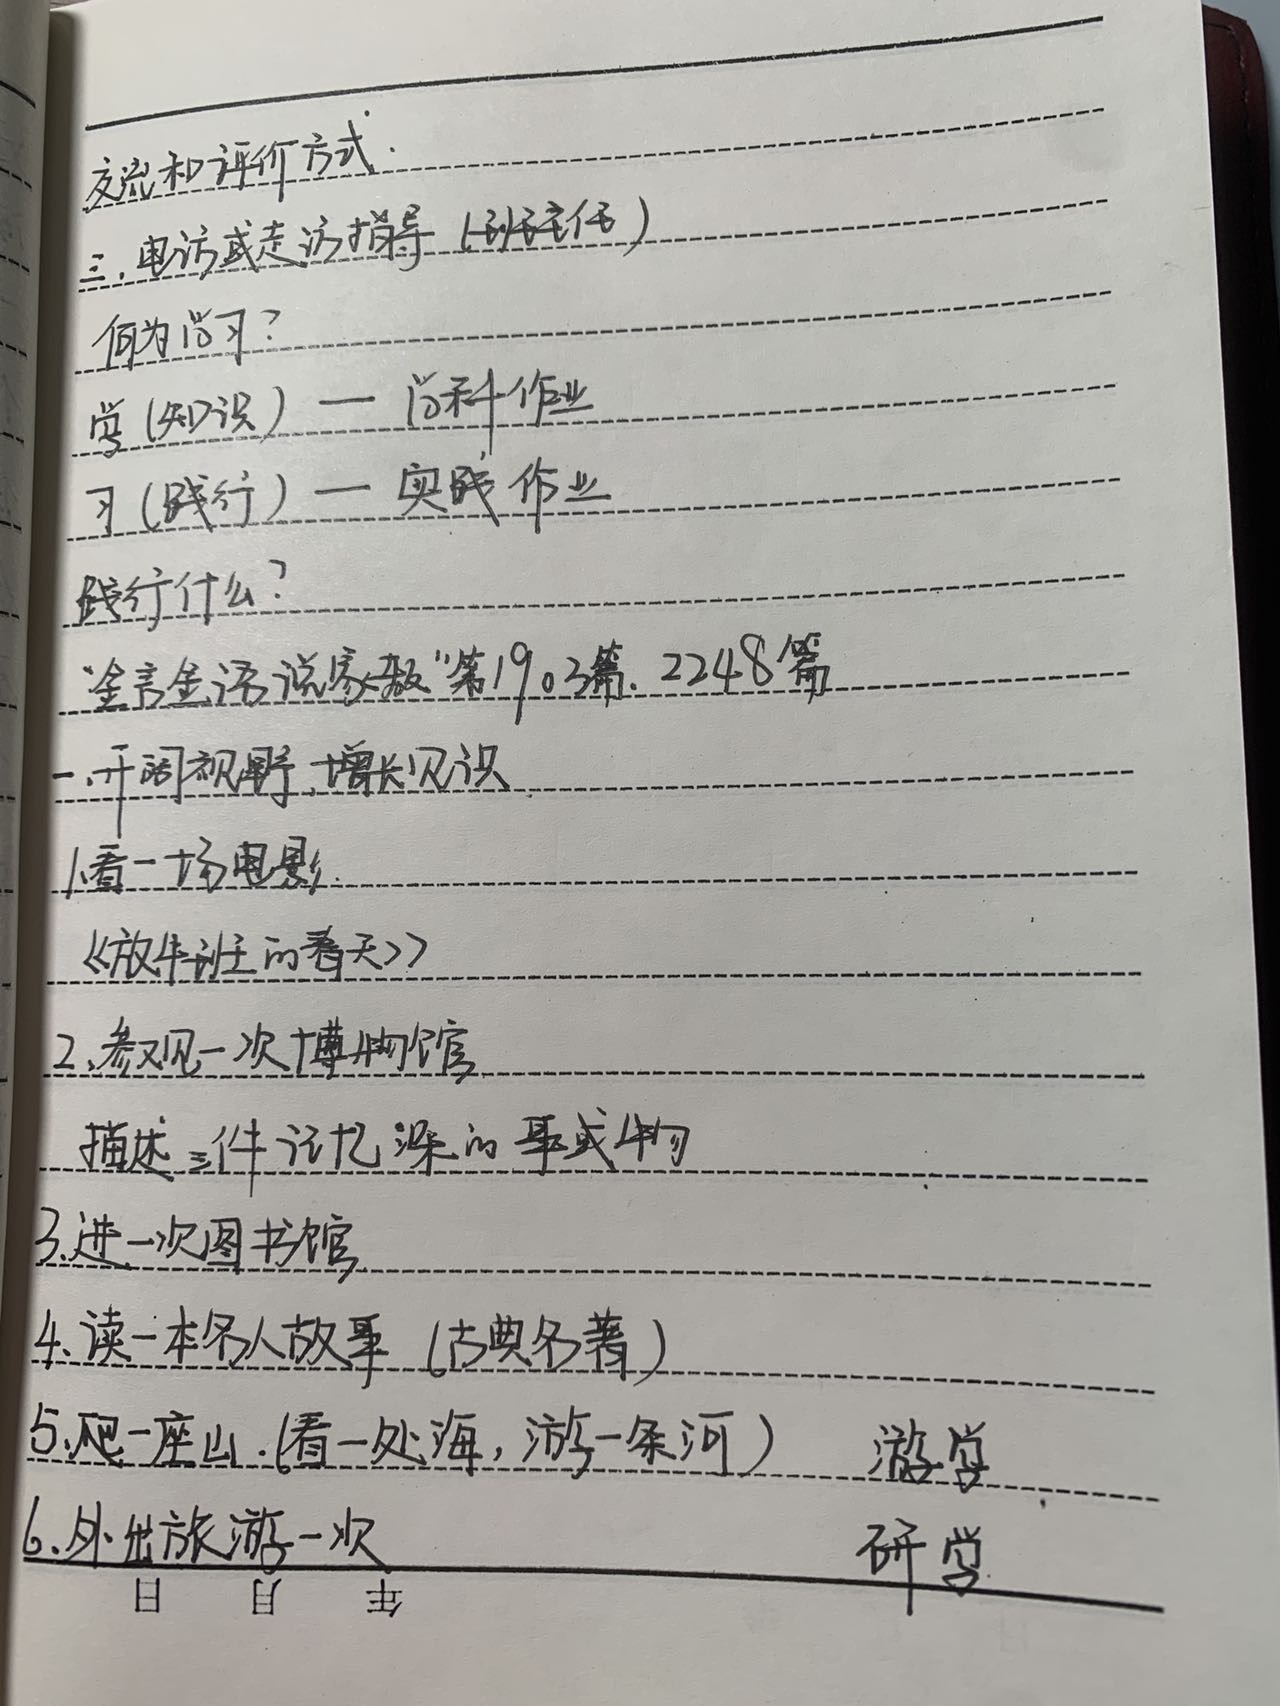 交流和评价方式.
三.电访或走访指导(班主任)
何为学习?
学(知识)— 学科作业
习(践行)— 实践作业
践行什么?
"金言金语说家教"第1903篇.2248篇
一.开阔视野,增长见识
1.看一场电影.
《放牛班的春天》
2.参观一次博物馆
描述三件记忆深的事或物
3.进一次图书馆
4.读一本名人故事(古典名著)
5.爬一座山.(看一处海,游一条河) 游学
6.外出旅游一次 研学
日 月 年